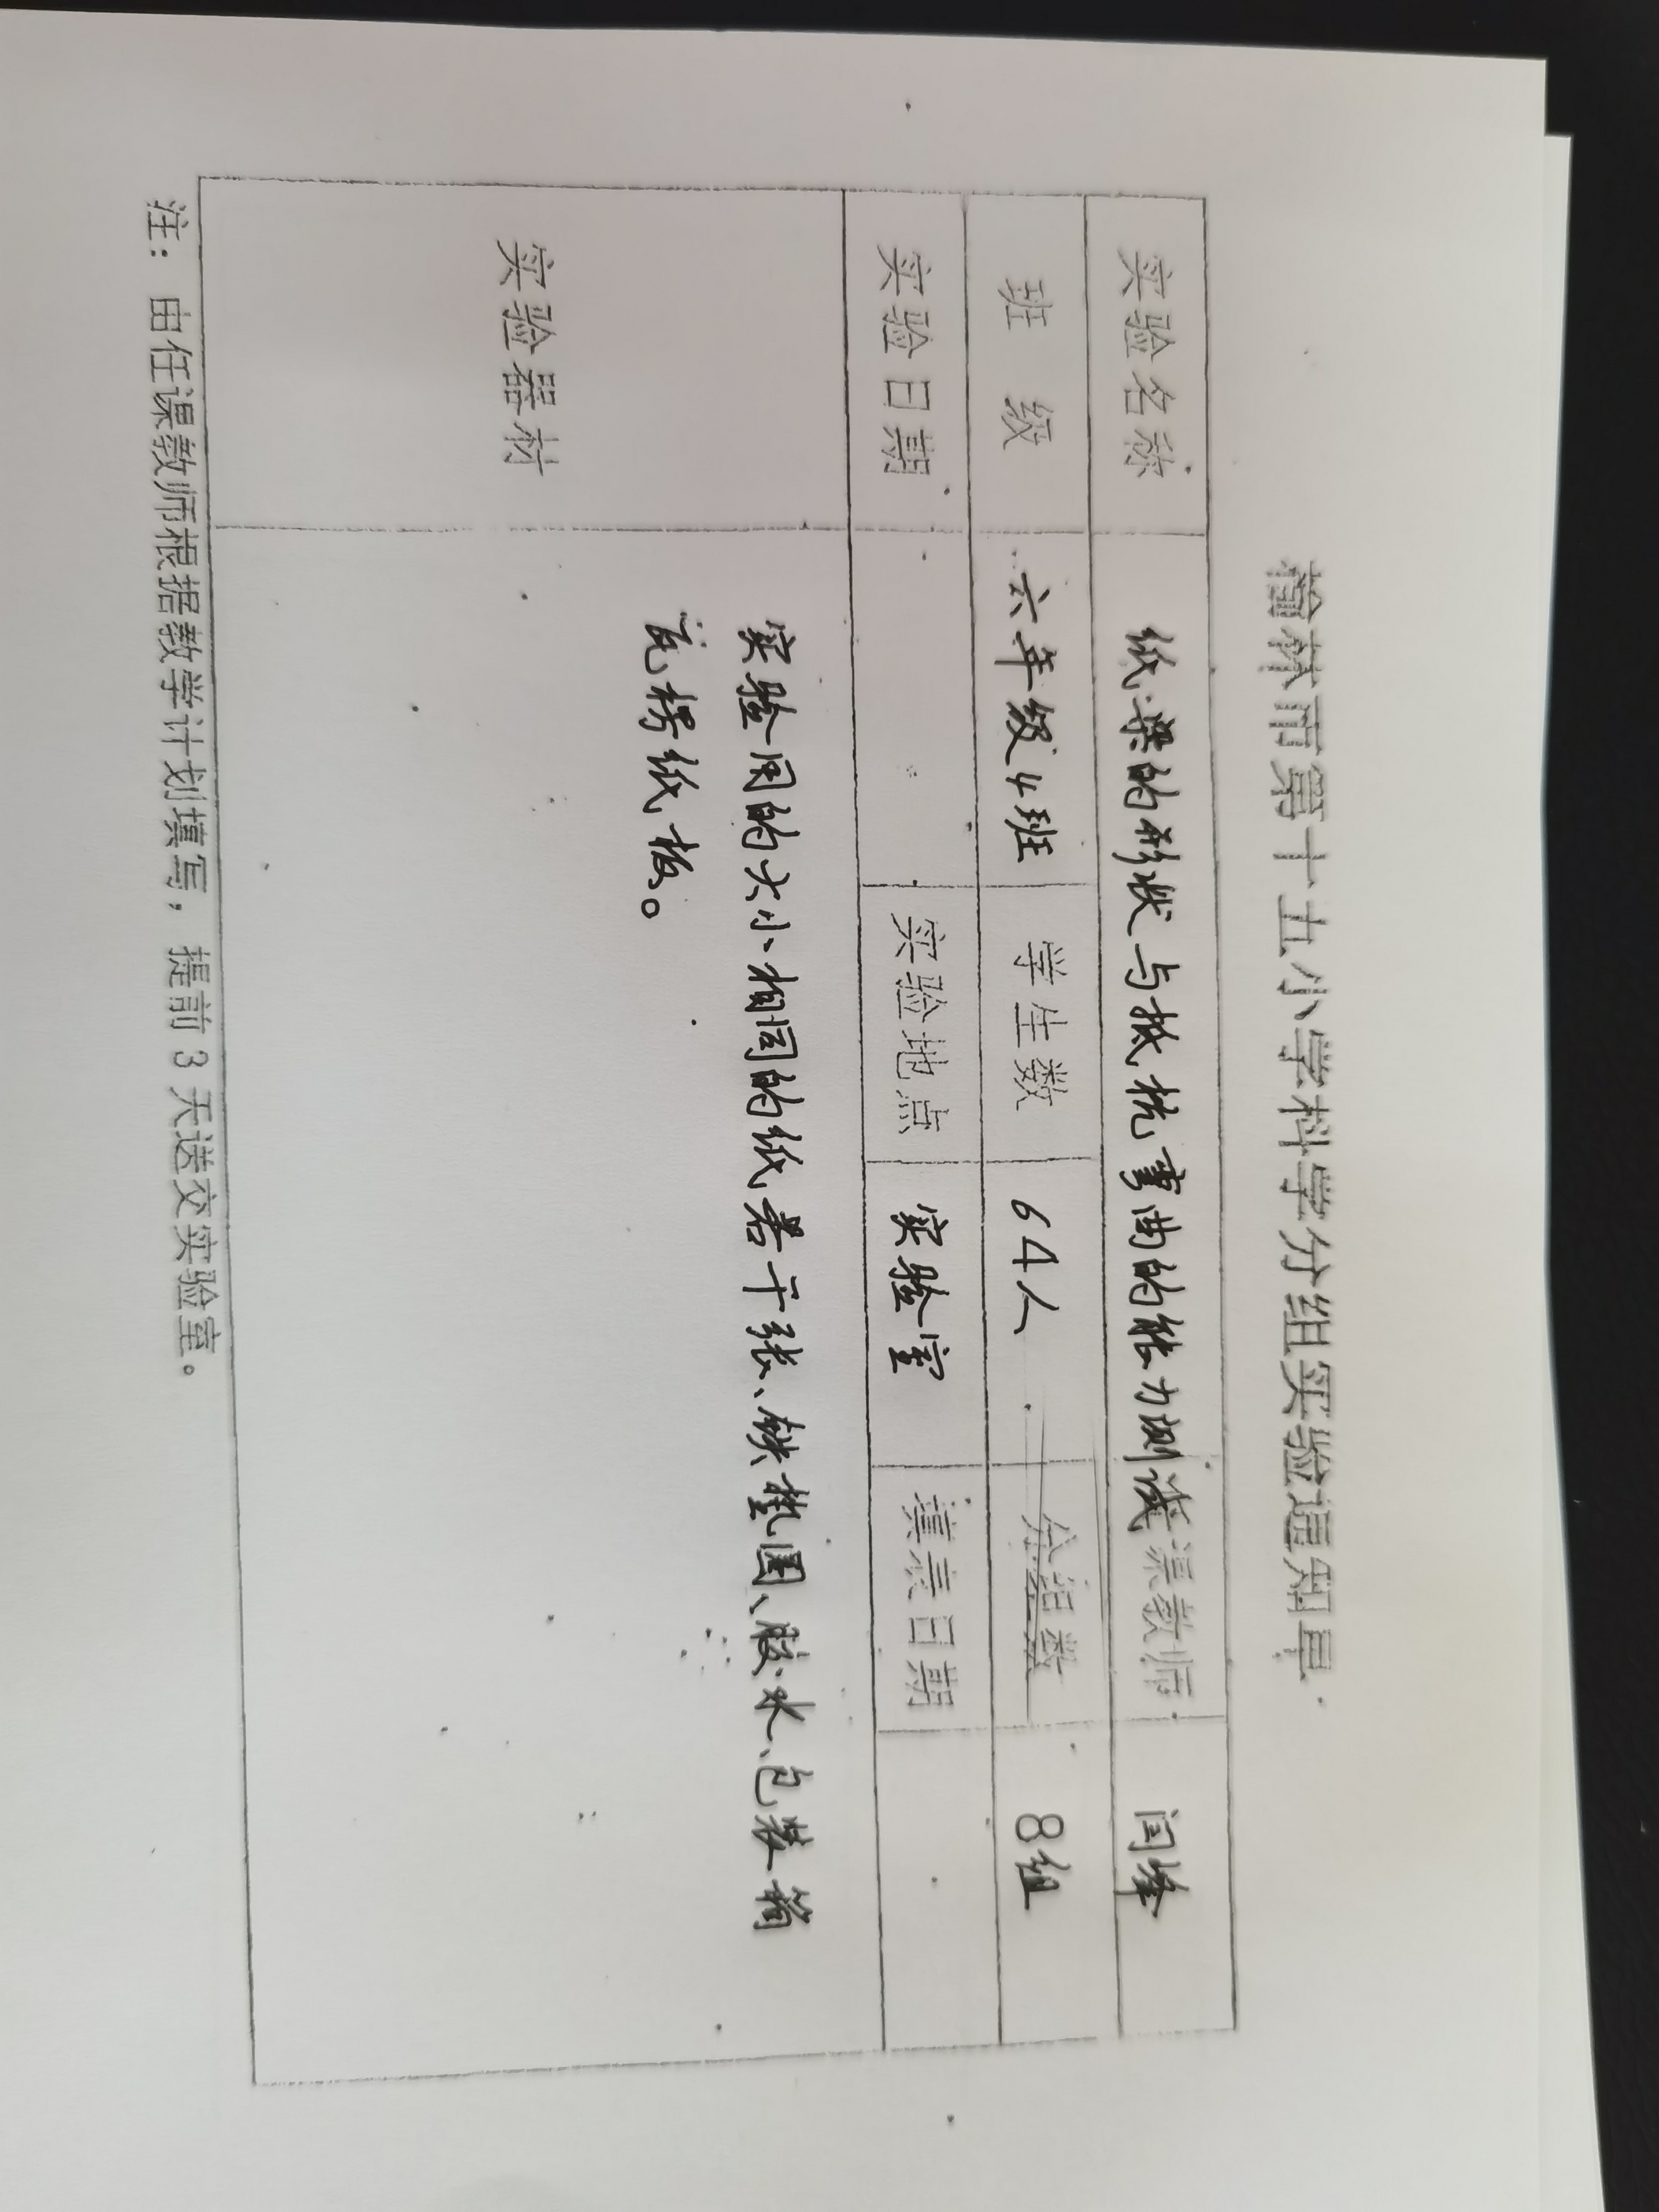 榆林市第十五小学科学分组实验通知单
实验名称 纸梁的形状与抵抗弯曲的能力测试 课教师 闫峰
班 级 六年级4班 学生数 64人 分组数 8组
实验日期 实验地点 实验室 填表日期
实验器材 实验用的大小相同的纸若干张、铁垫圈、胶水、包装箱
瓦楞纸板。
注：由任课教师根据教学计划填写，提前3天送交实验室。